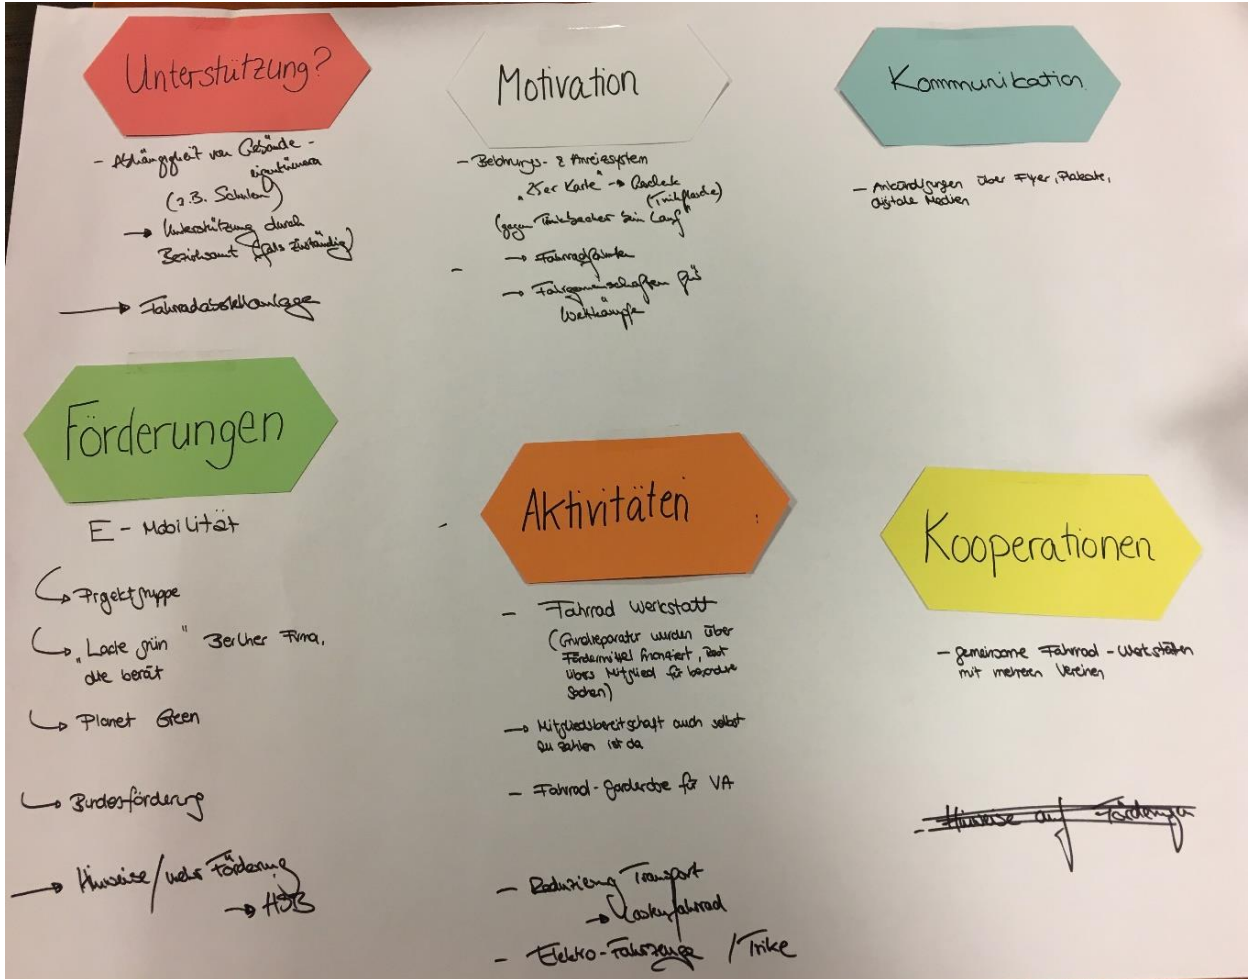 Unterstützung?
- Abhängigkeit von Gebäude-
eigentümern
(z.B. Schulen)
→ Unterstützung durch
Bezirksamt (falls zuständig)
→ Fahrradabstellanlage
Motivation
- Belohnungs- & Anreizsystem
"25er Karte" → Geschenk
(Trinkflasche)
(gegen Trinkbecher beim Lauf)
-
→ Fahrradpunkte
→ Fahrgemeinschaften für
Wettkämpfe
Kommunikation
- Ankündigungen über Flyer, Plakate,
digitale Medien
Förderungen
E-Mobilität
↳ Projektgruppe
↳ "Lade grün" Berliner Firma,
die berät
↳ Planet Green
↳ Bundesförderung
→ Hinweise / mehr Förderung
→ HSB
-
Aktivitäten
- Fahrrad Werkstatt
(Grundreparatur wurden über
Fördermittel finanziert, Rest
übers Mitglied für besondere
Sachen)
→ Mitgliedsbereitschaft auch selbst
zu zahlen ist da
- Fahrrad-Garderobe für VA
- Reduzierung Transport
→ Lastenfahrrad
- Elektro-Fahrzeuge / Trike
Kooperationen
- gemeinsame Fahrrad-Werkstätten
mit mehreren Vereinen
- Hinweise auf Förderungen